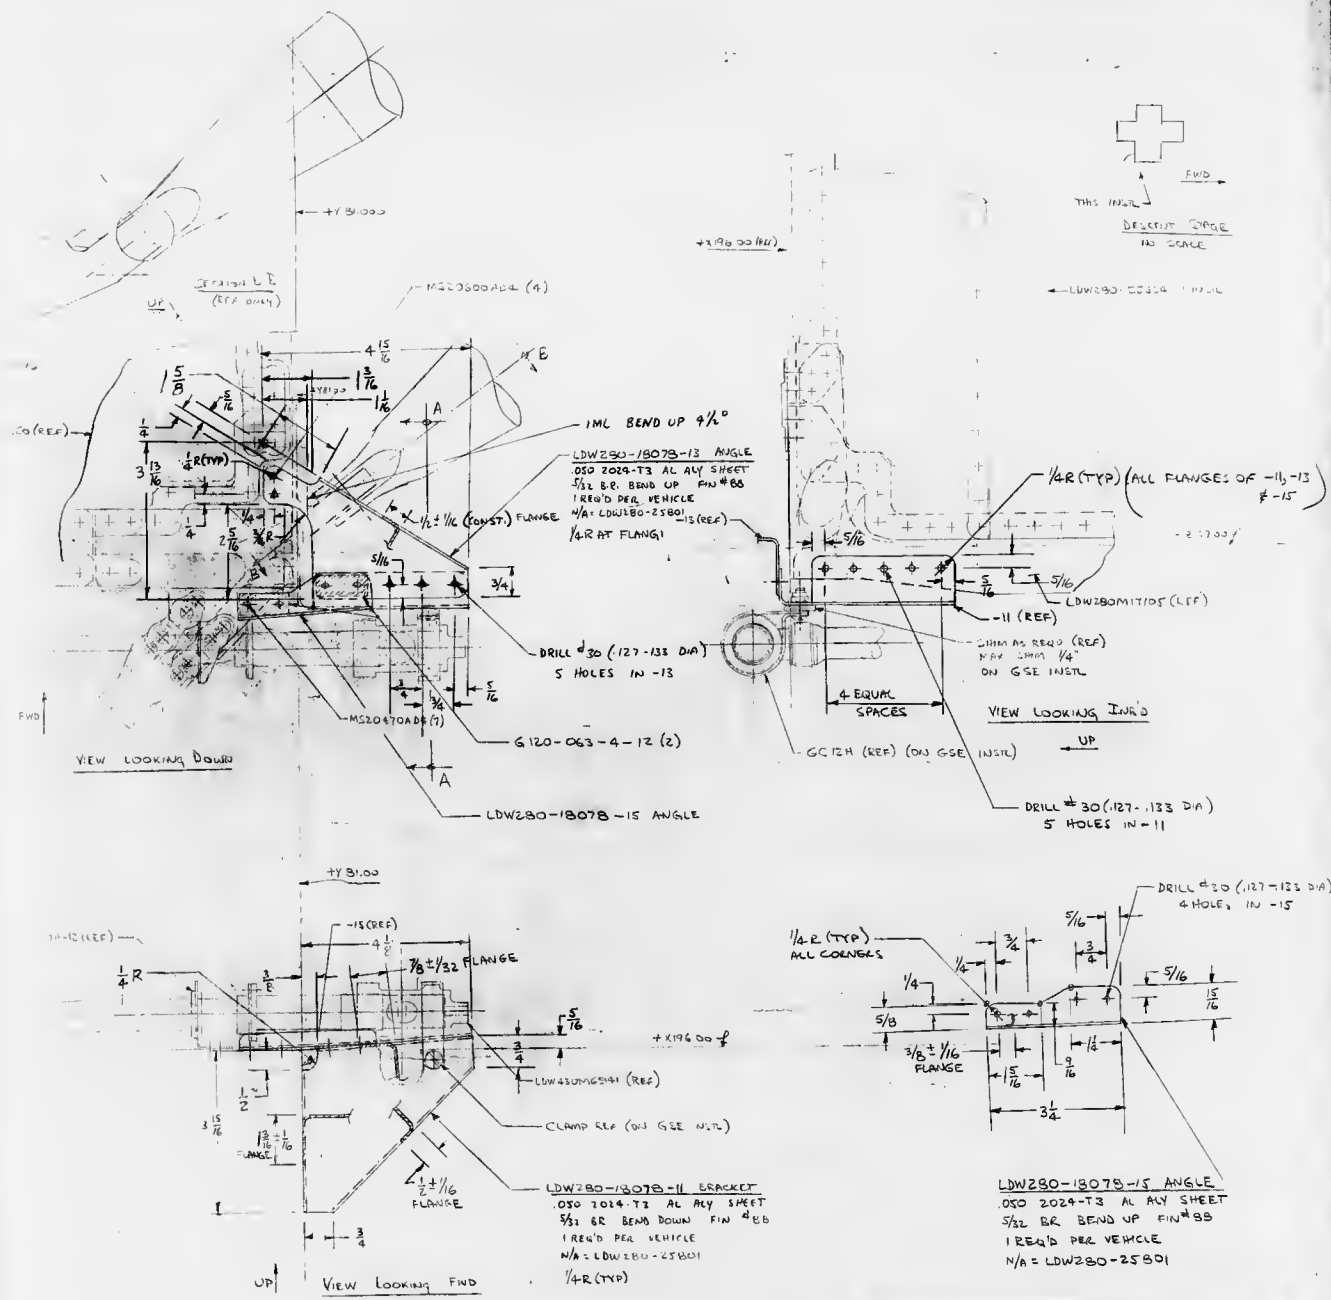 +Y 81.000
+X196.00 (REF)
FWD
THIS INSTL
DESCENT STAGE
NO SCALE
(REF ONLY)
UP
MS20600AD4 (4)
4 15/16
1 5/8
5/16
1/4
1 3/16
+Y81.00
1 1/16
E
A
3 13/16
1/4 R (TYP)
1/4
2 5/16
1/4
3/8 R
5/16
3/4
IML BEND UP 4 1/2°
LDW280-18078-13 ANGLE
.050 2024-T3 AL ALY SHEET
5/32 B.R. BEND UP FIN #88
1 REQ'D PER VEHICLE
N/A = LDW280-25801
1/4 R AT FLANG
1/2 ± 1/16 (CONST.) FLANGE
-13 (REF)
DRILL #30 (.127-.133 DIA)
5 HOLES IN -13
3/4
3/4
5/16
MS20470AD4 (7)
G120-063-4-12 (2)
A
LDW280-18078-15 ANGLE
FWD
VIEW LOOKING DOWN
1/4 R (TYP) (ALL FLANGES OF -11, -13
& -15)
5/16
5/16
5/16
LDW280M17105 (REF)
-11 (REF)
SHIM AS REQD (REF)
MAX SHIM 1/4"
ON GSE INSTL
4 EQUAL
SPACES
VIEW LOOKING INB'D
UP
GC12H (REF) (ON GSE INSTL)
DRILL #30 (.127-.133 DIA)
5 HOLES IN -11
+Y 81.00
-15 (REF)
4 1/8
7/8 ± 1/32 FLANGE
3/8
1/4 R
5/16
3/4
+X196.00
1/2
3 15/16
1 3/16 ± 1/16
FLANGE
1/2 ± 1/16
FLANGE
3/4
CLAMP REF (ON GSE INSTL)
LDW280-18078-11 BRACKET
.050 2024-T3 AL ALY SHEET
5/32 BR BEND DOWN FIN #88
1 REQ'D PER VEHICLE
N/A = LDW280-25801
1/4 R (TYP)
UP
VIEW LOOKING FWD
DRILL #30 (.127-.133 DIA)
4 HOLES IN -15
1/4 R (TYP)
ALL CORNERS
3/4
1/4
1/4
5/8
5/16
3/4
5/16
15/16
3/8 ± 1/16
FLANGE
1 5/16
9/16
1 1/4
3 1/4
LDW280-18078-15 ANGLE
.050 2024-T3 AL ALY SHEET
5/32 BR BEND UP FIN #88
1 REQ'D PER VEHICLE
N/A = LDW280-25801